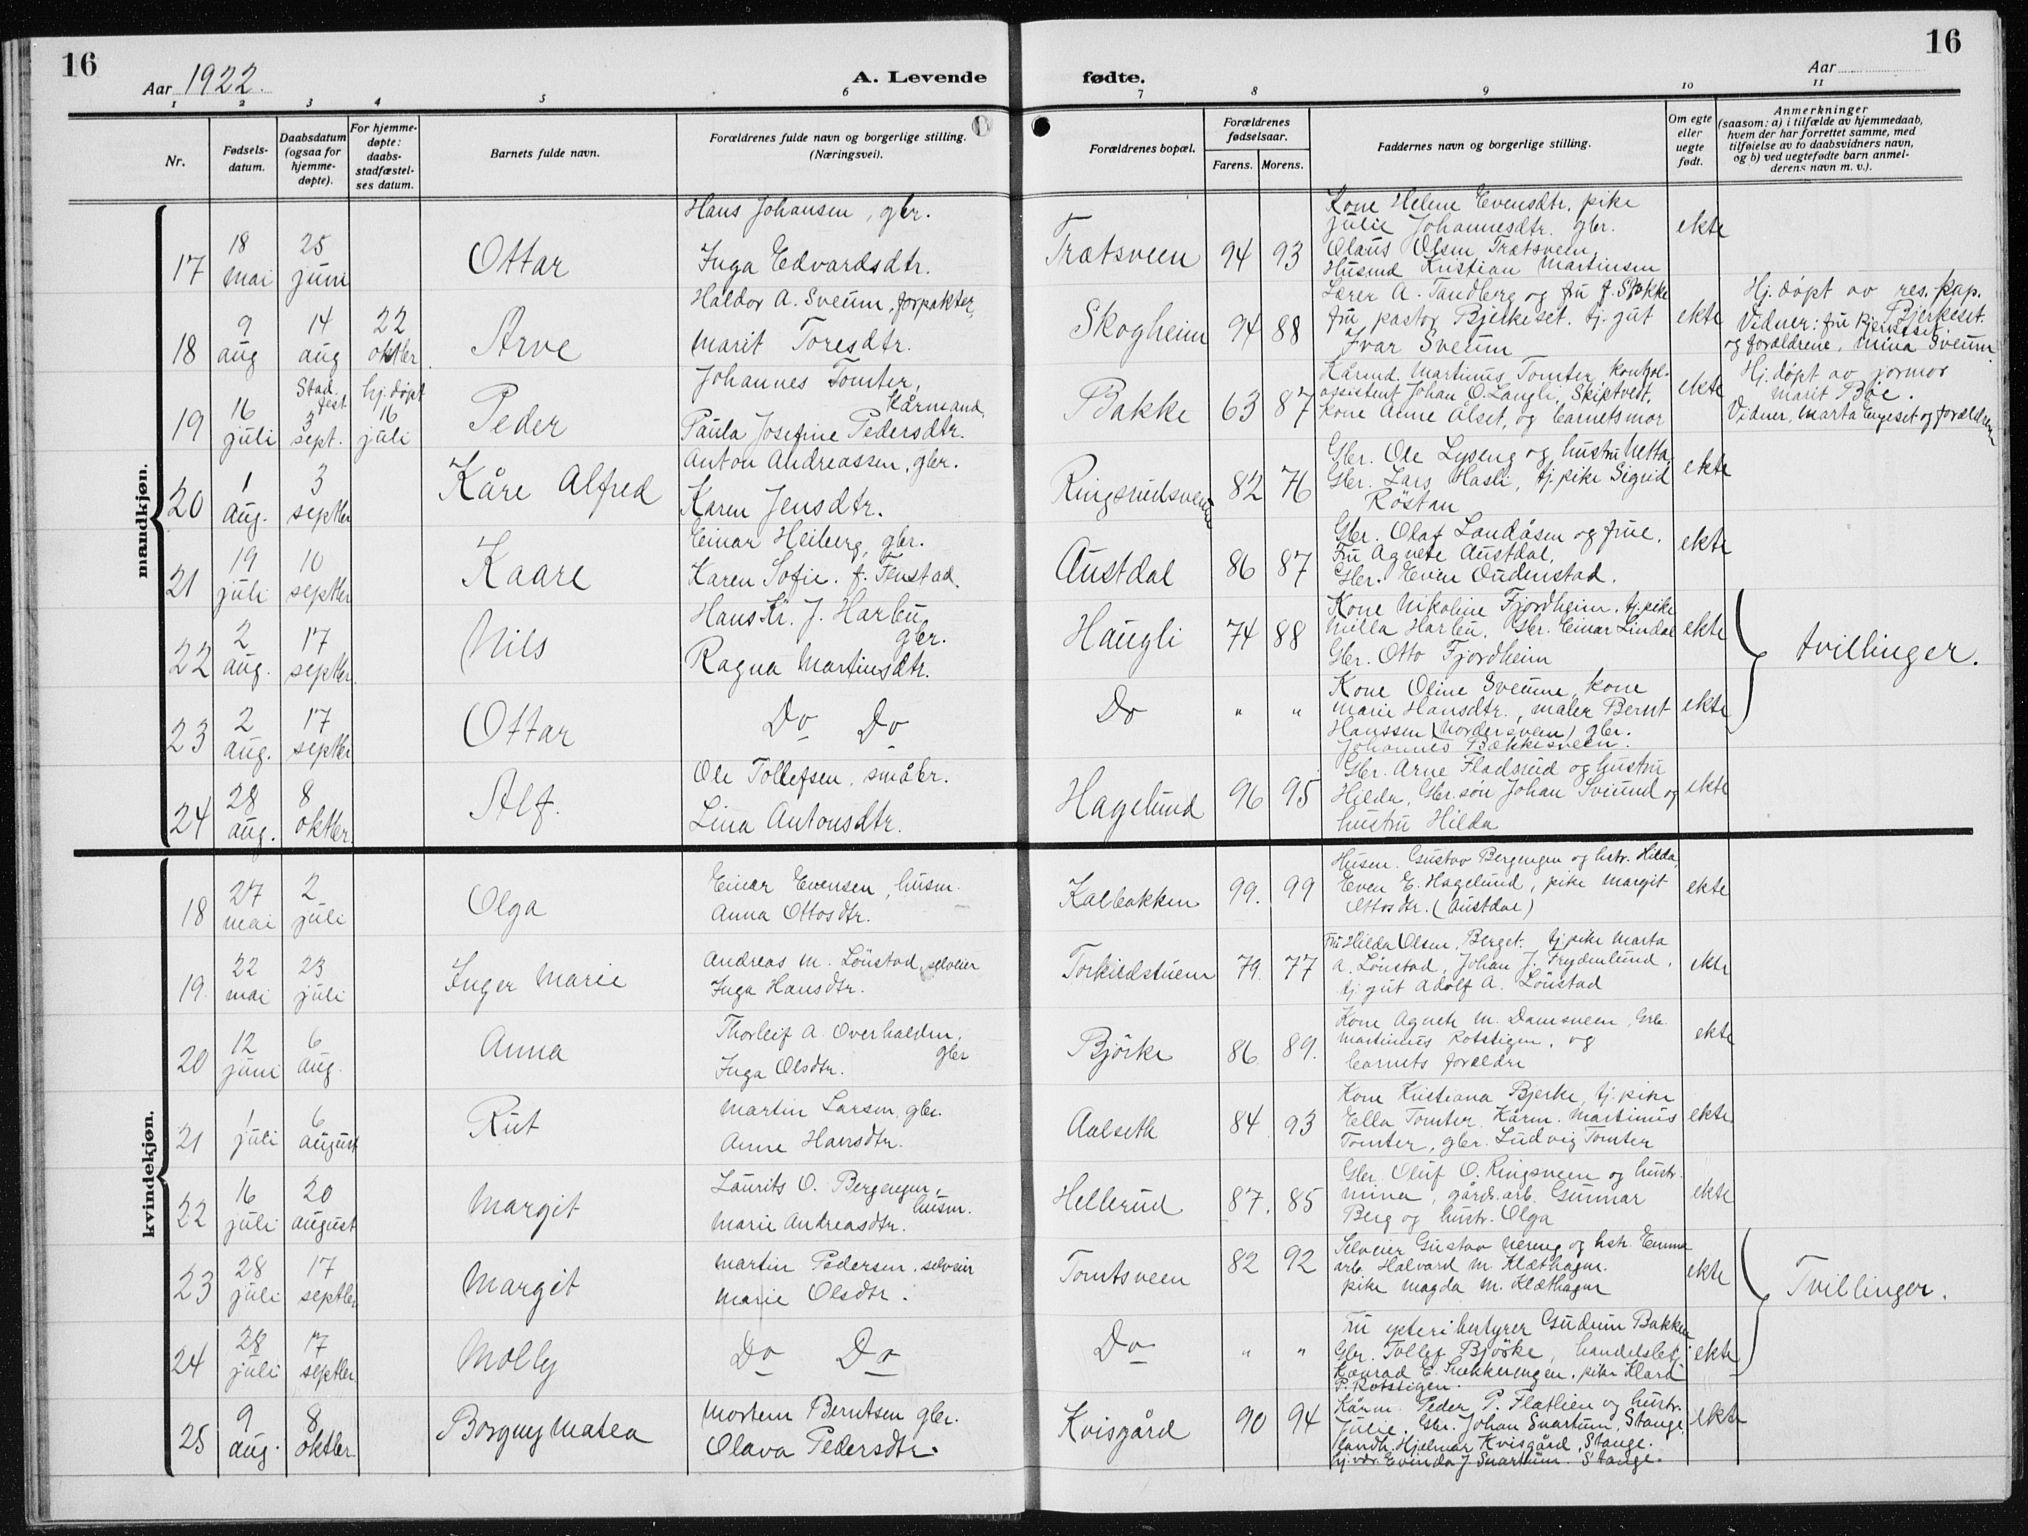 16
Aar 1922.
A. Levende
fødte.
Aar
16
1 2 3 4 5 6 7 8 9 10 11
Nr.
Fødsels-
datum.
Daabsdatum
(ogsaa for
hjemme-
døpte).
For hjemme-
døpte:
daabs-
stadfæstel-
ses datum.
Barnets fulde navn.
Forældrenes fulde navn og borgerlige stilling.
(Næringsvei).
Forældrenes bopæl.
Forældrenes
fødselsaar.
Farens. Morens.
Faddernes navn og borgerlige stilling.
Om egte
eller
uegte
født.
Anmerkninger
(saasom: a) i tilfælde av hjemmedaab,
hvem der har forrettet samme, med
tilføielse av to daabsvidners navn,
og b) ved uegtefødte barn anmel-
derens navn m. v.).
mandkjøn.
17
18
mai
25
juni
Ottar
Hans Johansen, gbr.
Inga Edvardsdtr.
Trætsveen 94 93
Kone Helene Evensdtr. pike
Julie Johannesdtr. gbr.
Olaus Olsen Trætsveen,
Husmd Kristian Martinsen
ekte
18
9
aug
14
aug
22
oktbr.
Arve
Haldor A. Sveum, forpakter,
Marit Toresdtr.
Skogheim 94 88
Lærer A. Tandberg og fru f. Stokke
fru pastor Bjerkeset. tj. gut
Ivar Sveum
ekte
Hj. døpt av res. kap.
Bjerkeset.
Vidner: fru Bjerkeset
og forældrene, Mina Sveum
19
16
juli
Stad.
fest.
3
sept.
hj. døpt
16
juli
Peder
Johannes Tomter,
kårmand,
Paula Josefine Pedersdtr.
Bakke 63 87
Kårmd. Martinus Tomter, kontrol-
assistent Johan O. Langli, Skiptvedt,
kone Anne Alset, og barnets mor
ekte
Hj. døpt av jormor
Marit Bøe.
Vidner, Marta Engeset og forældrene
20
1
aug.
3
septbr
Kåre Alfred
Anton Andreassen, gbr.
Karen Jensdtr.
Ringsrudsveen 82 76
Gbr. Ole Lyseng og hustru Netta
Gbr. Lars Hasli, tj. pike Sigrid
Röstan
ekte
21
19
juli
10
septbr
Kaare
Einar Heiberg, gbr.
Karen Sofie. f. Tenstad.
Austdal 86 87
Gbr. Olaf Landåsen og frue,
Fru Agnete Austdal,
Gbr. Even Oudenstad.
ekte
22
2
aug.
17
septbr.
Nils
Hans Kr. J. Harbu
gbr.
Ragna Martinsdtr.
Haugli 74 88
Kone Nikoline Fjordheim, tj. pike
Milla Harbu, Gbr. Einar Lindal
Gbr. Otto Fjordheim
ekte
tvillinger.
23
2
aug.
17
septbr
Ottar
Do Do
Do " "
Kone Oline Sveum, kone
Marie Hansdtr., maler Bernt
Hanssen (Nordersveen) gbr.
Johannes Bækkesveen.
ekte
24
28
aug.
8
oktbr.
Alf.
Ole Tollefsen, småbr.
Lina Antonsdtr.
Hagelund 96 95
Gbr. Arne Fladsrud og hustru
Hilda, Gbr. søn Johan Sveund og
hustru Hilda
ekte
kvindekjøn.
18
27
mai
2
juli
Olga
Einar Evensen, husm.
Anna Ottosdtr.
Kalbakken 99. 99
Husm. Gustav Bergengen og hstr. Hilda,
Even E. Hagelund, pike Margit
Ottosdtr. (Austdal)
ekte
19.
22
mai
23
juli
Inger Marie
Andreas M. Lönstad, selveier
Inga Hansdtr.
Torkildstuen 79. 77
Fru Hilda Olsen, Berget. tj. pike Marta
A. Lönstad, Johan J. Frydenlund,
tj. gut Adolf A. Lönstad
ekte
20
12
juni
6
aug.
Anna
Thorleif A. Overhalden,
gbr
Inga Olsdtr.
Björke 86 89.
Kone Agnete M. Damsveen, Gbr.
Martinus Rotstigen, og
barnets forældre
ekte
21
1
juli
6
august
Rut
Martin Larsen, gbr.
Anne Hansdtr.
Aalseth 84 93
Kone Kristiana Bjerke, tj. pike
Ella Tomter, Kårm. Martinus
Tomter, gbr. Ludvig Tomter
ekte
22
16
juli
20
august
Margit
Laurits O. Bergengen,
husm.
Marie Andreasdtr.
Hellerud 87. 85
Gbr. Oluf O. Ringsveen og hustr.
Mina, gårds. arb. Gunnar
Berg og hustr. Olga
ekte
23
28
juli
17
septbr
Margit
Martin Pedersen, selveier
Marie Olsdtr.
Tomtsveen 82 92
Selveier Gustav Nereng og hstr. Emma
arb. Halvard M. Klæthagen.
pike Magda M. Klæthagen
ekte
Tvillinger.
24
28
juli
17
septbr.
Molly
Do Do
Do " "
Fru Gudrun Bakken
Gbr. Tollef Björke, handelsbetj.
Konrad E. pike Klara
P. Rotstigen.
ekte
25
9
aug.
8
oktbr.
Borgny Matea
Morten Berntsen gbr.
Olava Pedersdtr.
Kvisgård 90 94
Kårm. Peder P. Flatlien og hustr.
Julie, Gbr. Johan Snartum, Stange,
landh. Hjelmar Kvisgård, Stange.
Evinda J Snartum. Stange.
ekte